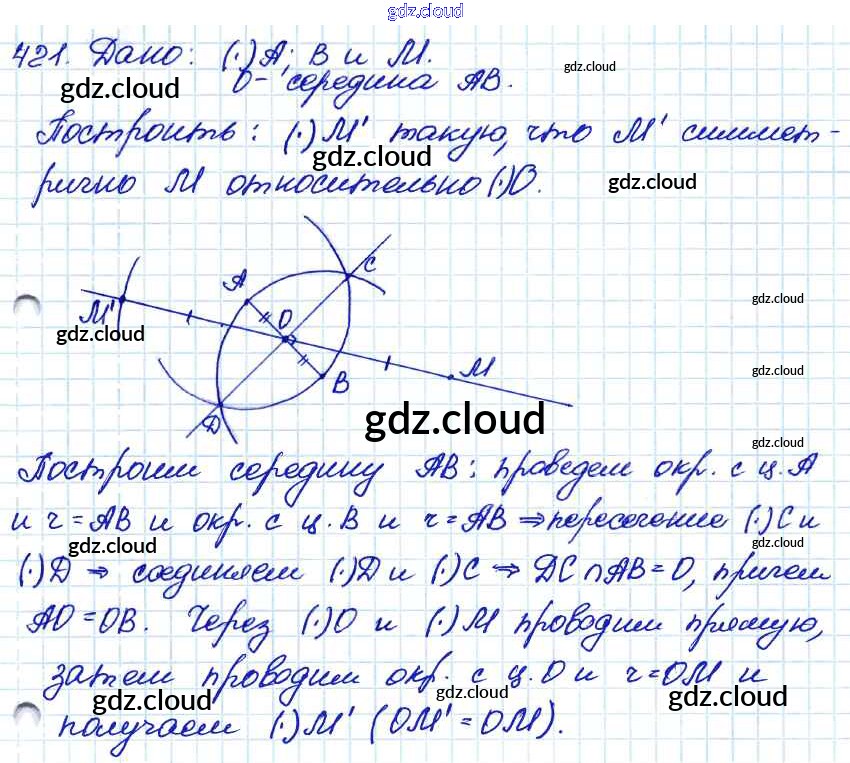 gdz.cloud
421. Дано: (·)А; В и М.
gdz.cloud
gdz.cloud
О - середина АВ.
Построить: (·)М' такую, что М' симмет-
gdz.cloud
рично М относительно (·)О.
gdz.cloud
С
А
gdz.cloud
М'
О
gdz.cloud
М
В
gdz.cloud
D
gdz.cloud
Построим середину АВ: проведем окр. с ц. А
и r = АВ и окр. с ц. В и r = АВ ⇒ пересечение (·)С и
gdz.cloud
gdz.cloud
(·)D ⇒ соединяем (·)D и (·)С ⇒ DC ∩ AB = O, причем
АО = ОВ. Через (·)О и (·)М проводим прямую,
gdz.cloud
gdz.cloud
затем проводим окр. с ц. О и r = ОМ и
gdz.cloud
gdz.cloud
gdz.cloud
получаем (·)М' (ОМ' = ОМ).